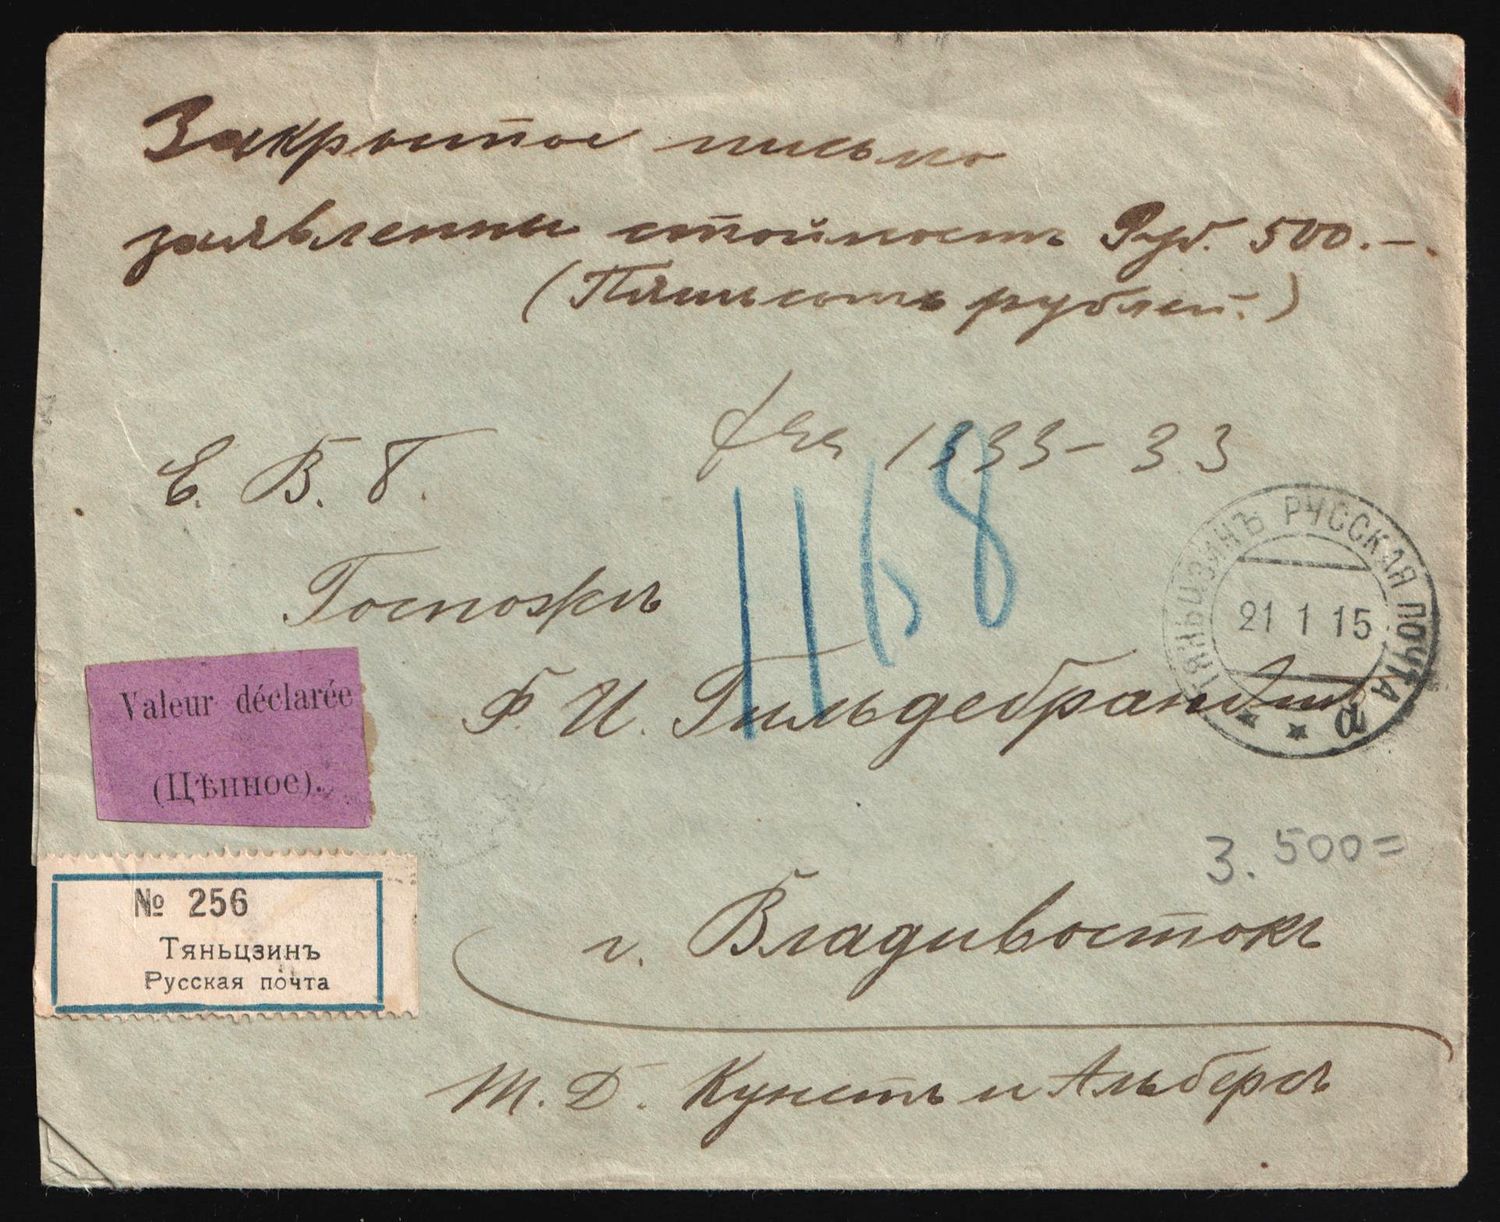 Закрытое письмо
заявленны стоймость Руб. 500.—.
(Пятьсотъ рублей.)
1333 – 33
Е. В. Б.
1168
Госпожѣ
Ф. И. Гильдебрандтъ
ТЯНЬЦЗИНЪ РУССКАЯ ПОЧТА Ф
21 1 15
Valeur déclarée
(Цѣнное).
3. 500=
№ 256
Тяньцзинъ
Русская почта
г. Владивостокъ
Т. Д. Кунстъ и Альберсъ